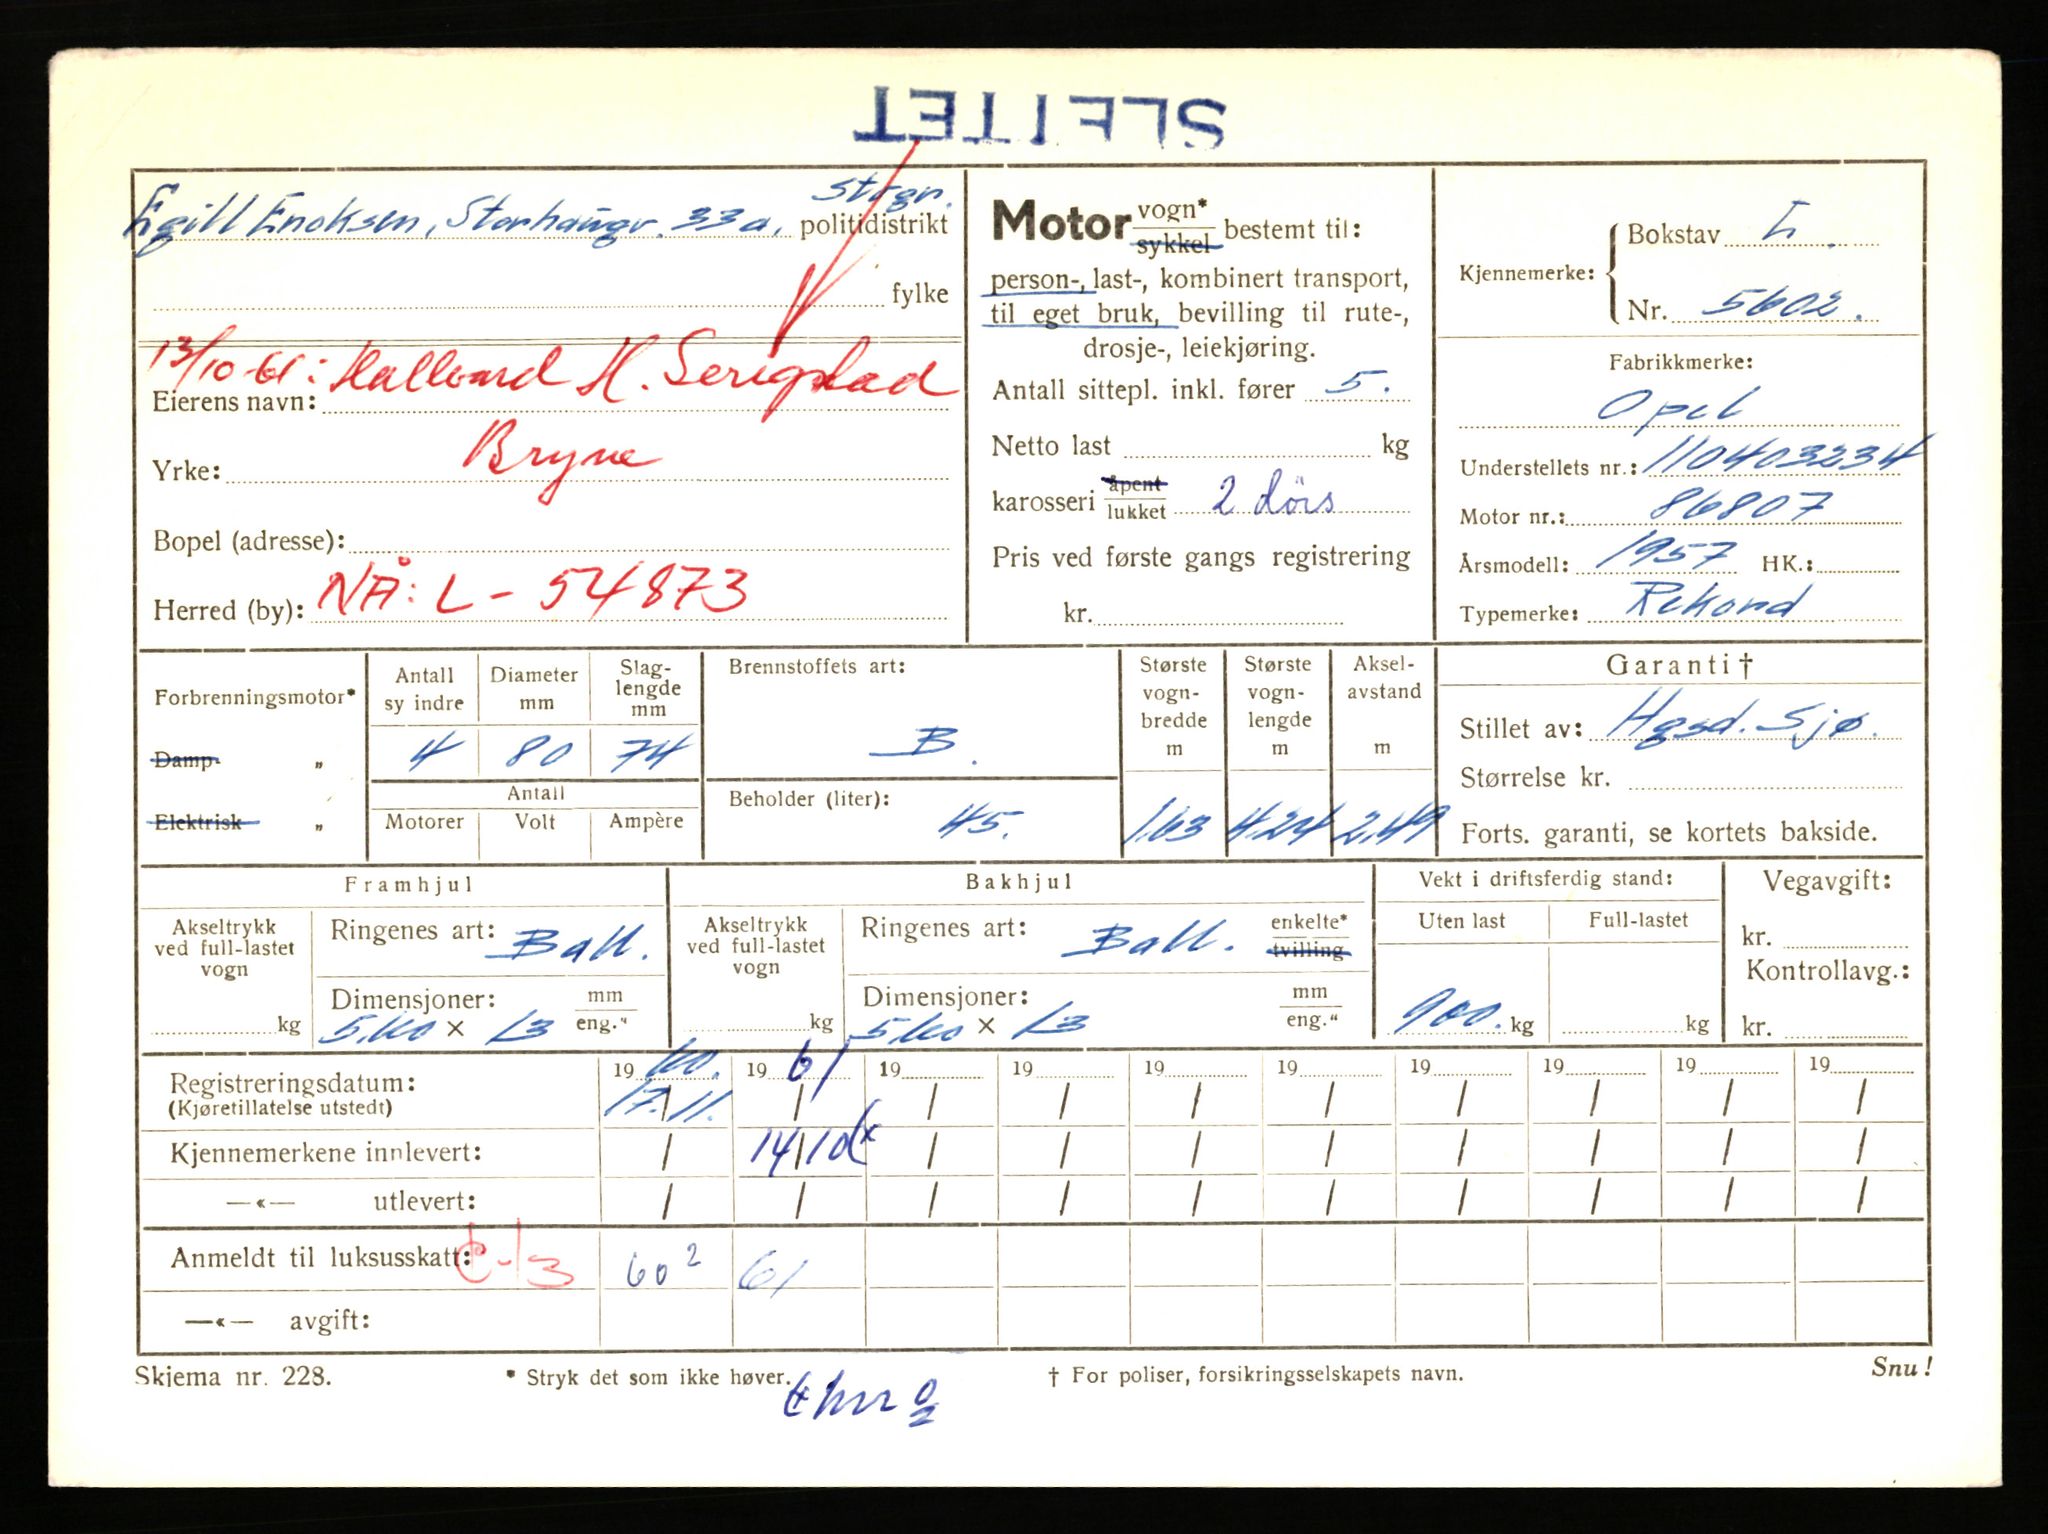 SLETTET
Egill Enoksen, Storhaugv. 33a, politidistrikt
fylke
13/10-61: Hallvard H. Serigstad
Eierens navn:
Bryne
Yrke:
Bopel (adresse):
Herred (by): NÅ: L - 54873
Motor vogn* sykkel bestemt til:
person-, last-, kombinert transport,
til eget bruk, bevilling til rute-,
drosje-, leiekjøring.
Antall sittepl. inkl. fører 5.
Netto last kg
karosseri åpent lukket 2 dörs
Pris ved første gangs registrering
kr.
Kjennemerke: Bokstav L.
Nr. 5602.
Fabrikkmerke:
Opel
Understellets nr.: 110403234
Motor nr.: 86807
Årsmodell: 1957 HK.:
Typemerke: Rekord
Forbrenningsmotor*
Damp- „
Elektrisk „
Antall sy indre
Diameter mm
Slag-lengde mm
4 80 74
Antall
Motorer Volt Ampère
Brennstoffets art:
B.
Beholder (liter):
45.
Største vogn-bredde m
Største vogn-lengde m
Aksel-avstand m
1,63 4,24 2,49
Garanti†
Stillet av: Hgsd. Sjø.
Størrelse kr.
Forts. garanti, se kortets bakside.
Framhjul
Akseltrykk ved full-lastet vogn
kg
Ringenes art: Ball.
Dimensjoner: mm
5.60 × 13 eng."
Bakhjul
Akseltrykk ved full-lastet vogn
kg
Ringenes art: Ball. enkelte* tvilling
Dimensjoner: mm
5.60 × 13 eng."
Vekt i driftsferdig stand:
Uten last Full-lastet
900. kg kg
Vegavgift:
kr.
Kontrollavg.:
kr.
19 60. 19 61 19 19 19 19 19 19 19 19
Registreringsdatum: 17/11. / / / / / / / / /
(Kjøretillatelse utstedt)
Kjennemerkene innlevert: / 14/10 x / / / / / / / /
—«— utlevert: / / / / / / / / / /
Anmeldt til luksusskatt: 60² 61
—«— avgift:
Skjema nr. 228. * Stryk det som ikke høver. † For poliser, forsikringsselskapets navn. Snu!